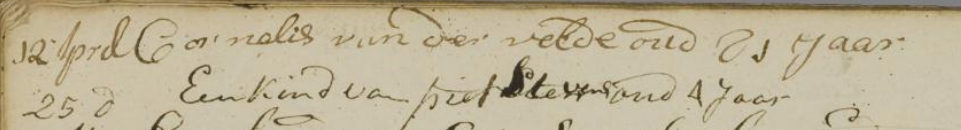 12 Aprd Cornelis van der velde oud 21 Jaar
25 d Een kind van piet oud 4 Jaar